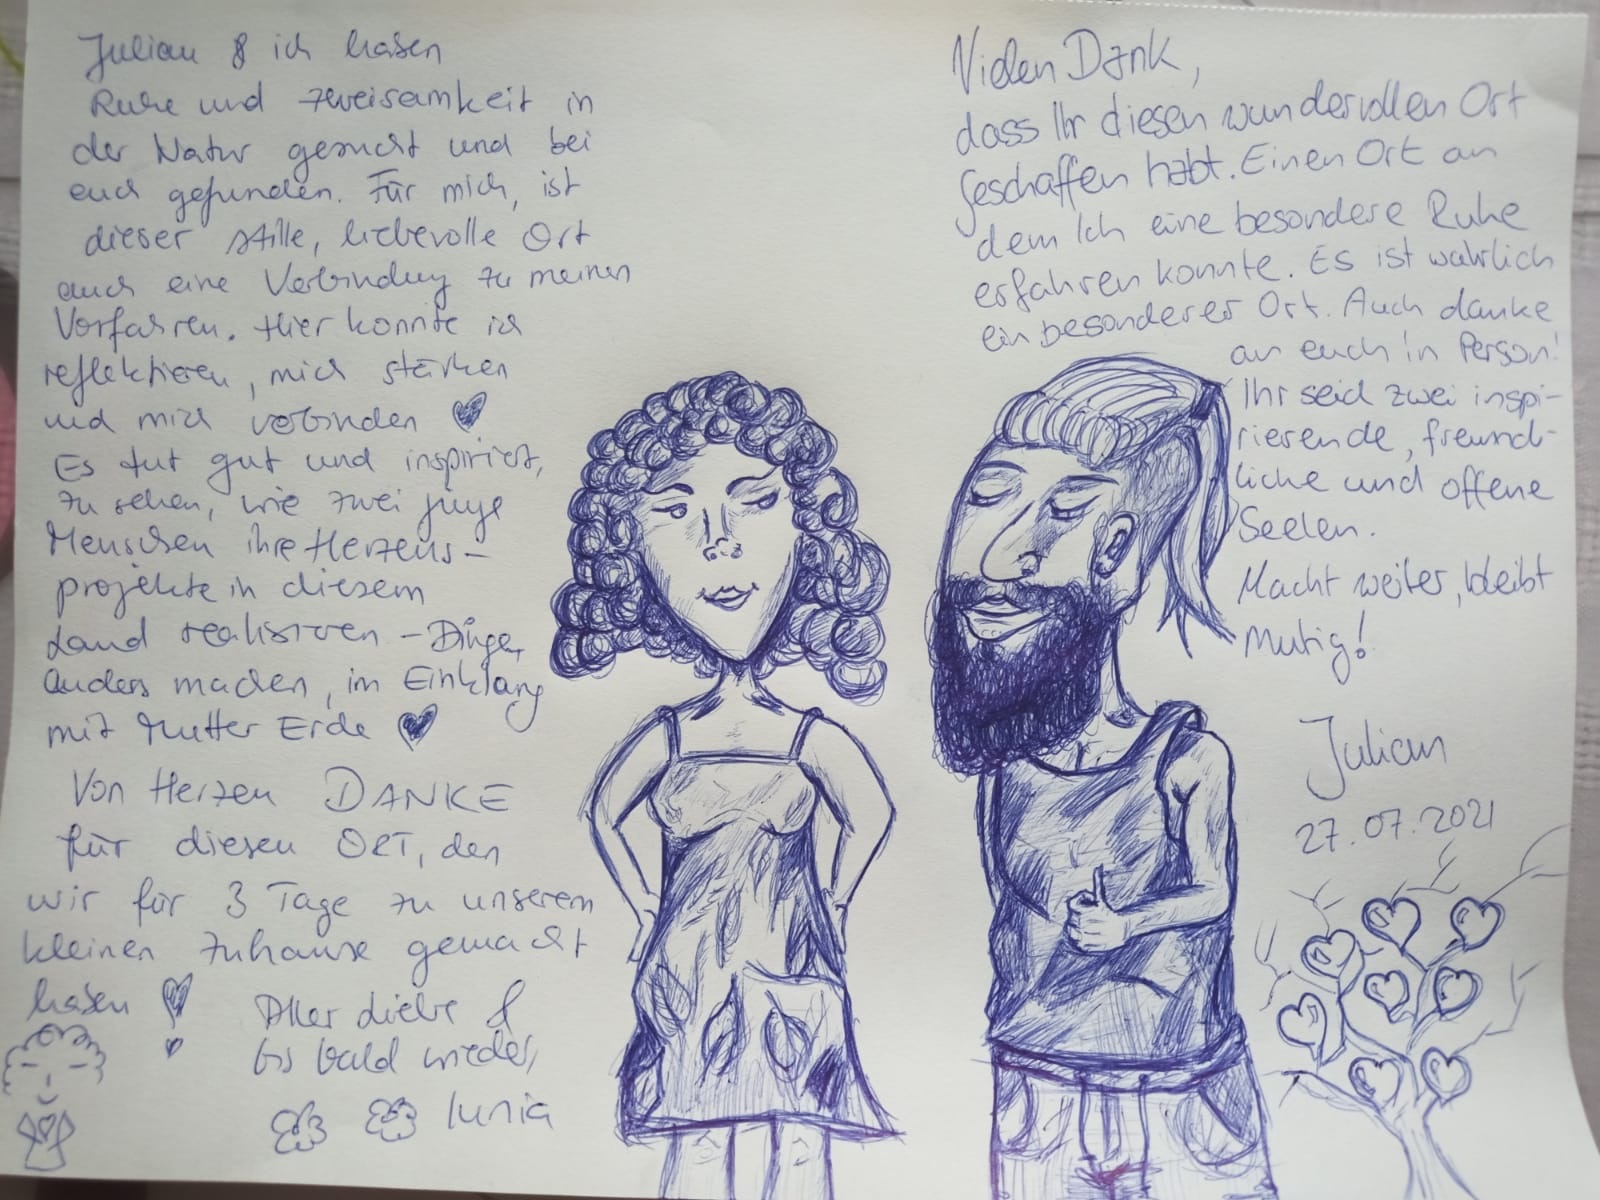 Julian & ich haben
Ruhe und Zweisamkeit in
der Natur gesucht und bei
euch gefunden. Für mich, ist
dieser stille, liebevolle Ort
auch eine Verbindung zu meinen
Vorfahren. Hier konnte ich
reflektieren, mich stärken
und mich verbinden
Es tut gut und inspiriert,
zu sehen, wie zwei junge
Menschen ihre Herzens-
projekte in diesem
Land realisieren - Dinge
anders machen, im Einklang
mit Mutter Erde
Von Herzen DANKE
für diesen ORT, den
wir für 3 Tage zu unserem
kleinen Zuhause gemacht
haben
Aller Liebe &
bis bald wieder,
Iunia
Vielen Dank,
dass Ihr diesen wundervollen Ort
geschaffen habt. Einen Ort an
dem Ich eine besondere Ruhe
erfahren konnte. Es ist wahrlich
ein besonderer Ort. Auch danke
an euch in Person!
Ihr seid zwei inspi-
rierende, freund-
liche und offene
Seelen.
Macht weiter, bleibt
Mutig!
Julian
27.07.2021